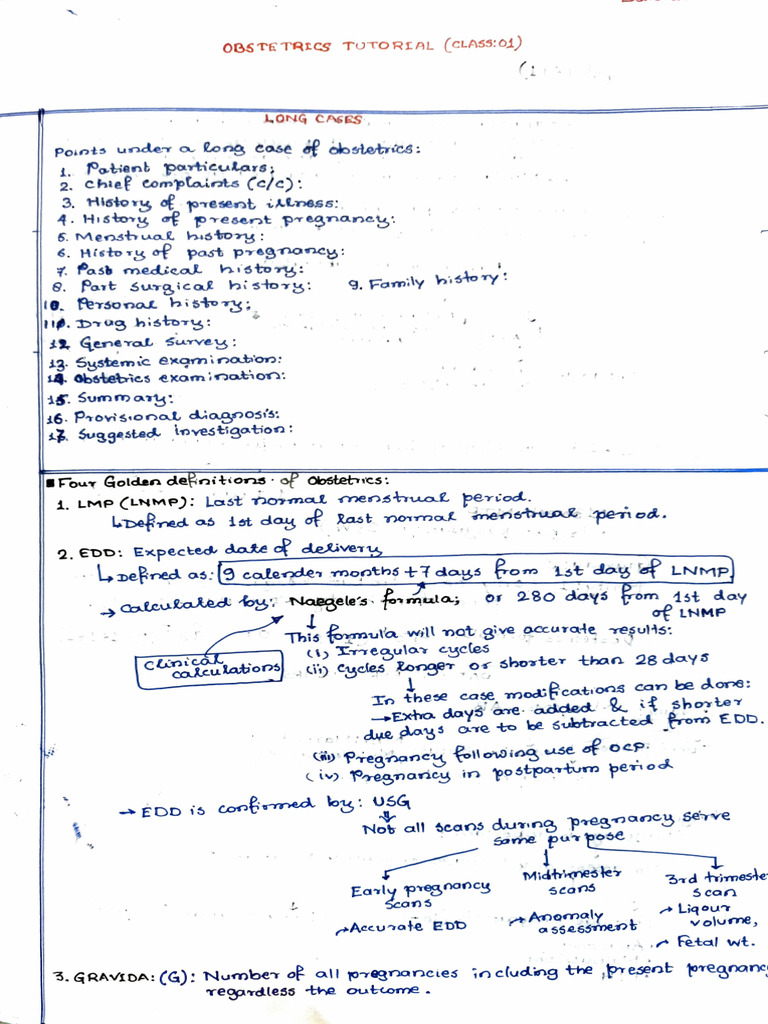 OBSTETRICS TUTORIAL (CLASS:01)
LONG CASES
Points under a long case of obstetrics:
1. Patient particulars;
2. Chief complaints (c/c):
3. History of present illness:
4. History of present pregnancy:
5. Menstrual history:
6. History of past pregnancy:
7. Past medical history:
8. Part surgical history: 9. Family history:
10. Personal history;
11. Drug history:
12. General survey:
13. Systemic examination:
14. Obstetrics examination:
15. Summary:
16. Provisional diagnosis:
17. Suggested investigation:
■ Four Golden definitions of Obstetrics:
1. LMP (LNMP): Last normal menstrual period.
↳ Defined as 1st day of last normal menstrual period.
2. EDD: Expected date of delivery
↳ Defined as: 9 calender months + 7 days from 1st day of LNMP
→ Calculated by: Naegele's formula; or 280 days from 1st day
of LNMP
Clinical
calculations
This formula will not give accurate results:
(i) Irregular cycles
(ii) Cycles longer or shorter than 28 days
In these case modifications can be done:
→ Extra days are added & if shorter
due days are to be subtracted from EDD.
(iii) Pregnancy following use of OCP.
(iv) Pregnancy in postpartum period
→ EDD is confirmed by: USG
Not all scans during pregnancy serve
same purpose
Early pregnancy
scans
→ Accurate EDD
Midtrimester
scans
→ Anomaly
assessment
3rd trimester
scan
→ Liqour
volume,
→ Fetal wt.
3. GRAVIDA: (G): Number of all pregnancies including the present pregnanc
regardless the outcome.